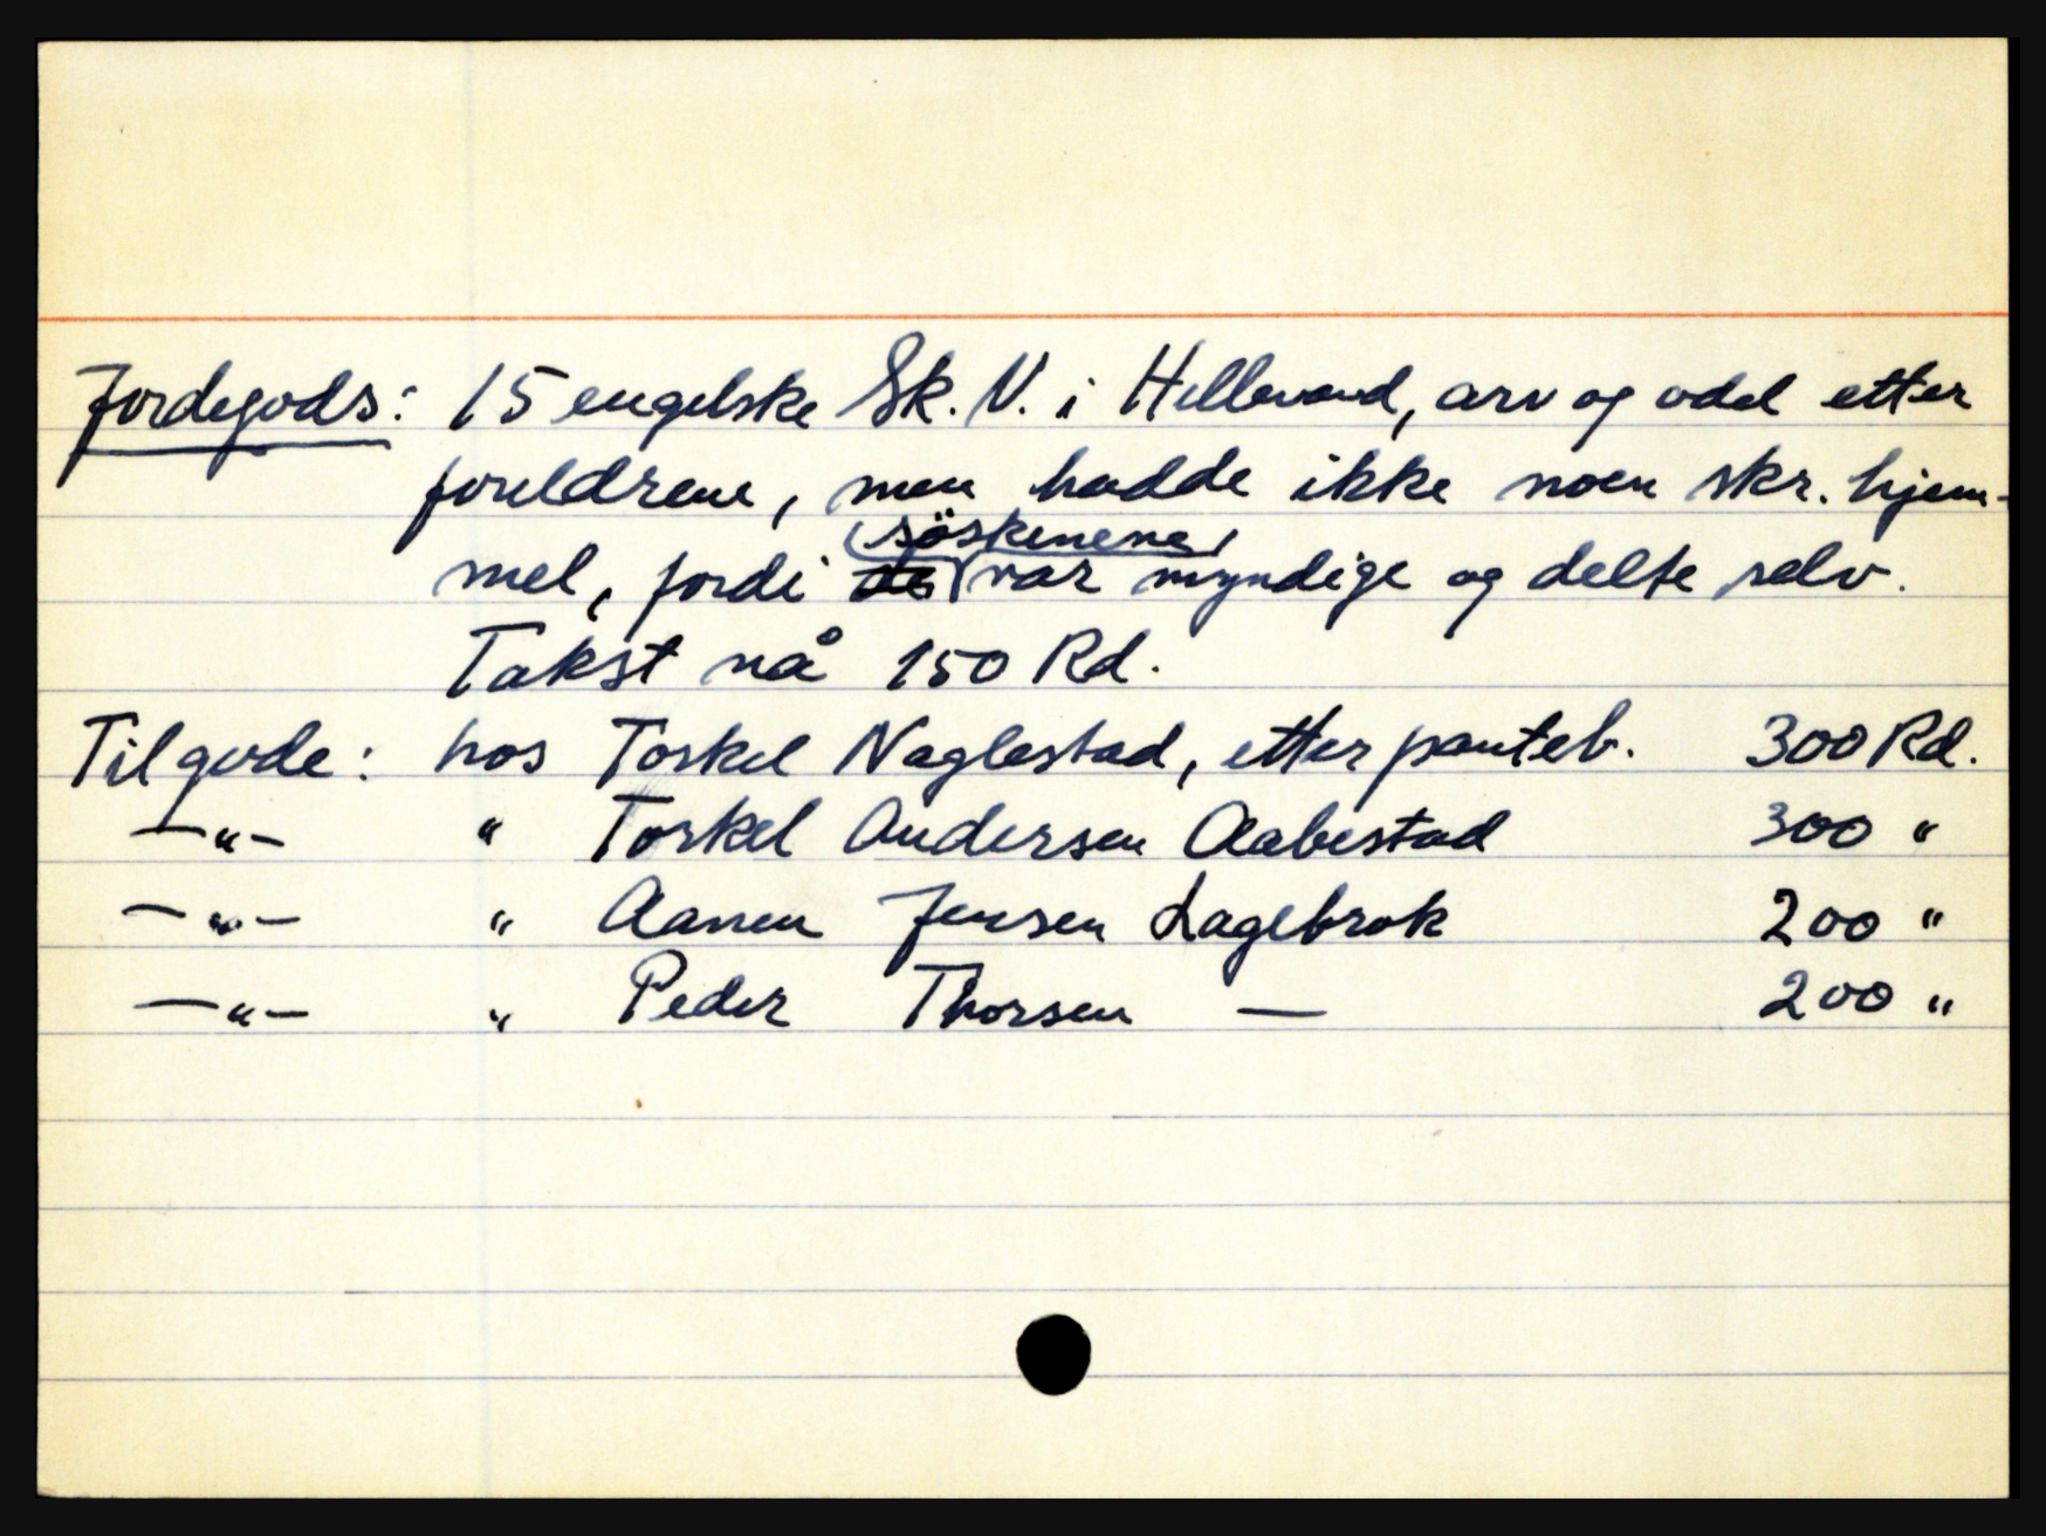 Jordegods: 15 engelske Sk. V. i Hellevand, arv og odel etter
foreldrene, men hadde ikke noen skr. hjem-
mel, fordi de (söskenene) var myndige og delte selv.
Takst nå 150 Rd.
Tilgode: hos Torkel Naglestad, etter panteb. 300 Rd.
—"— " Torkel Andersen Aabestad 300 "
—"— " Aanen Jensen Lagebrok 200 "
—"— " Peder Thorsen — 200 "